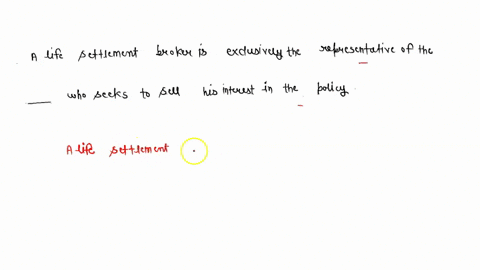 A life settlement broker is exclusively the representative of the
___ who seeks to sell his interest in the policy.
A life settlement